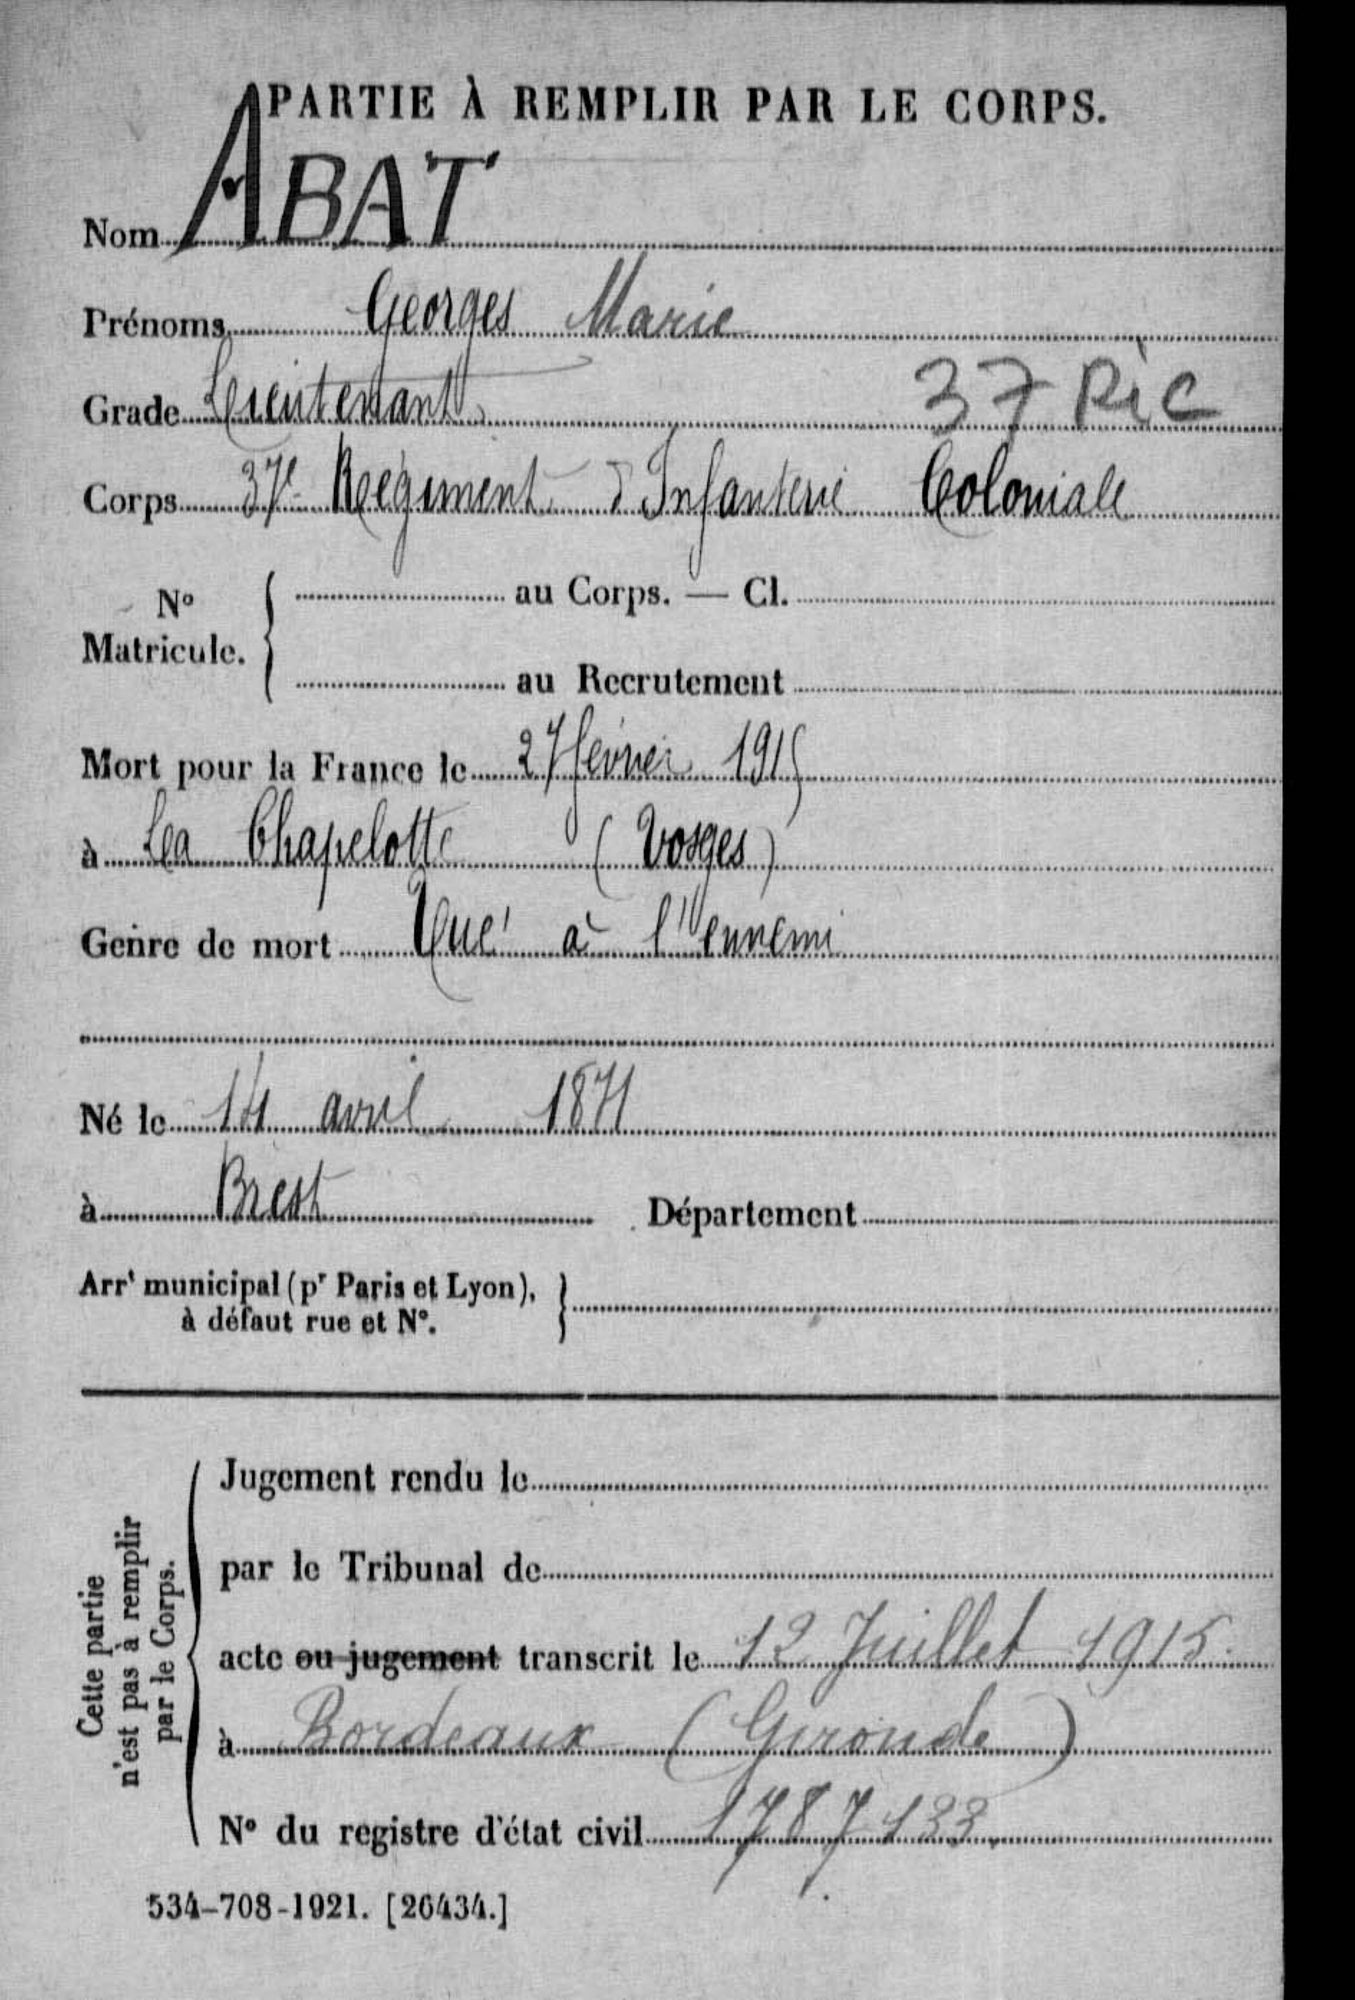 PARTIE À REMPLIR PAR LE CORPS.
Nom ABAT
Prénoms Georges Marie
Grade Lieutenant 37 RIC
Corps 37e Régiment d'Infanterie Coloniale
N° Matricule. { au Corps. — Cl.
au Recrutement
Mort pour la France le 27 février 1915
à La Chapelotte (Vosges)
Genre de mort Tué à l'ennemi
Né le 14 avril 1871
à Brest Département
Arrt municipal (pr Paris et Lyon), }
à défaut rue et N°.
Cette partie
n'est pas à remplir
par le Corps.
Jugement rendu le
par le Tribunal de
acte ou jugement transcrit le 12 Juillet 1915.
à Bordeaux (Gironde)
N° du registre d'état civil 1787/133.
534-708-1921. [26434.]